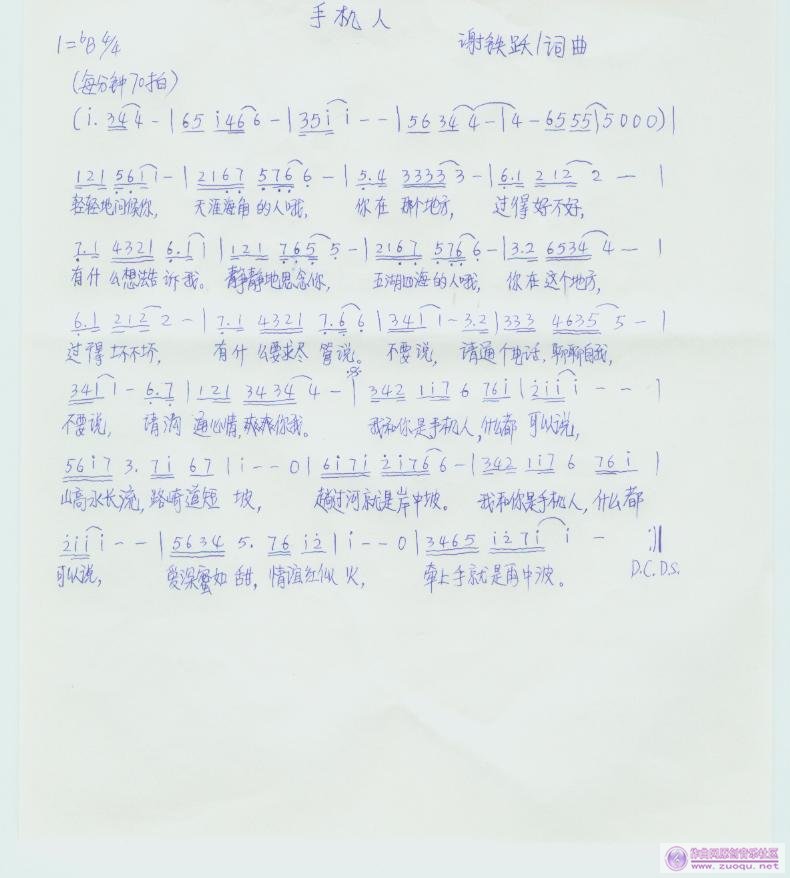 手机人
1=♭B 4/4
谢铁跃/词曲
(每分钟70拍)
(i. 344 - | 65 i466 - | 35i i - - | 56 344 - | 4 - 6555 | 5000) |
121 561i i - | 2167 5766 - | 5.4 3333 3 - | 6.1 212 2 - |
轻轻地问候你, 天涯海角的人哦, 你在那个地方, 过得好不好,
7.1 4321 6.1 i | 121 765 5 - | 2167 5766 - | 3.2 6534 4 - |
有什么想法告诉我。 静静地思念你, 五湖四海的人哦, 你在这个地方,
6.1 212 2 - | 7.1 4321 7.6 6 | 341 1 - 3.2 | 333 4635 5 - |
过得坏不坏, 有什么要求尽管说。 不要说, 请通个电话,聊聊自我,
341 1 - 6.7 | 121 3434 4 - | 342 117 6 76i | 2iii i - - |
不要说, 请沟通心情,爽爽你我。 我和你是手机人,什么都可以说,
56i7 3. 7i 67 | i - - 0 | 6i7i 2i766 - | 342 117 6 76 i |
山高水长流,路崎道短坡, 趟过河就是岸中坡。 我和你是手机人,什么都
2iii i - - | 5634 5. 76 i2 | i - - 0 | 3465 i27i i - :||
可以说, 爱深蜜如甜,情谊红似火, 牵上手就是再中波。
D.C.D.S.
作曲网原创音乐社区
www.zuoqu.net